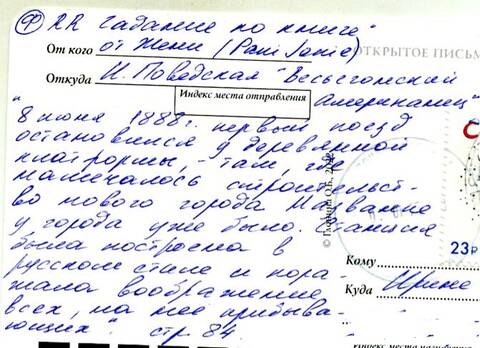 RR Гадание по книге"
От кого от Жени (Pani Janie)
ОТКРЫТОЕ ПИСЬМ
Откуда И. Поведская "Весьегонский
Индекс места отправления
Американец"
"8 июня 1888г. первый поезд
остановился у деревянной
платформы, - там, где
намечалось строительст-
во нового города Название
у города уже было. Станция
была построена в
русском стиле и пора-
жала воображение
всех, на нее прибыва-
ющих". стр. 84
23р
Кому
Куда Ирине